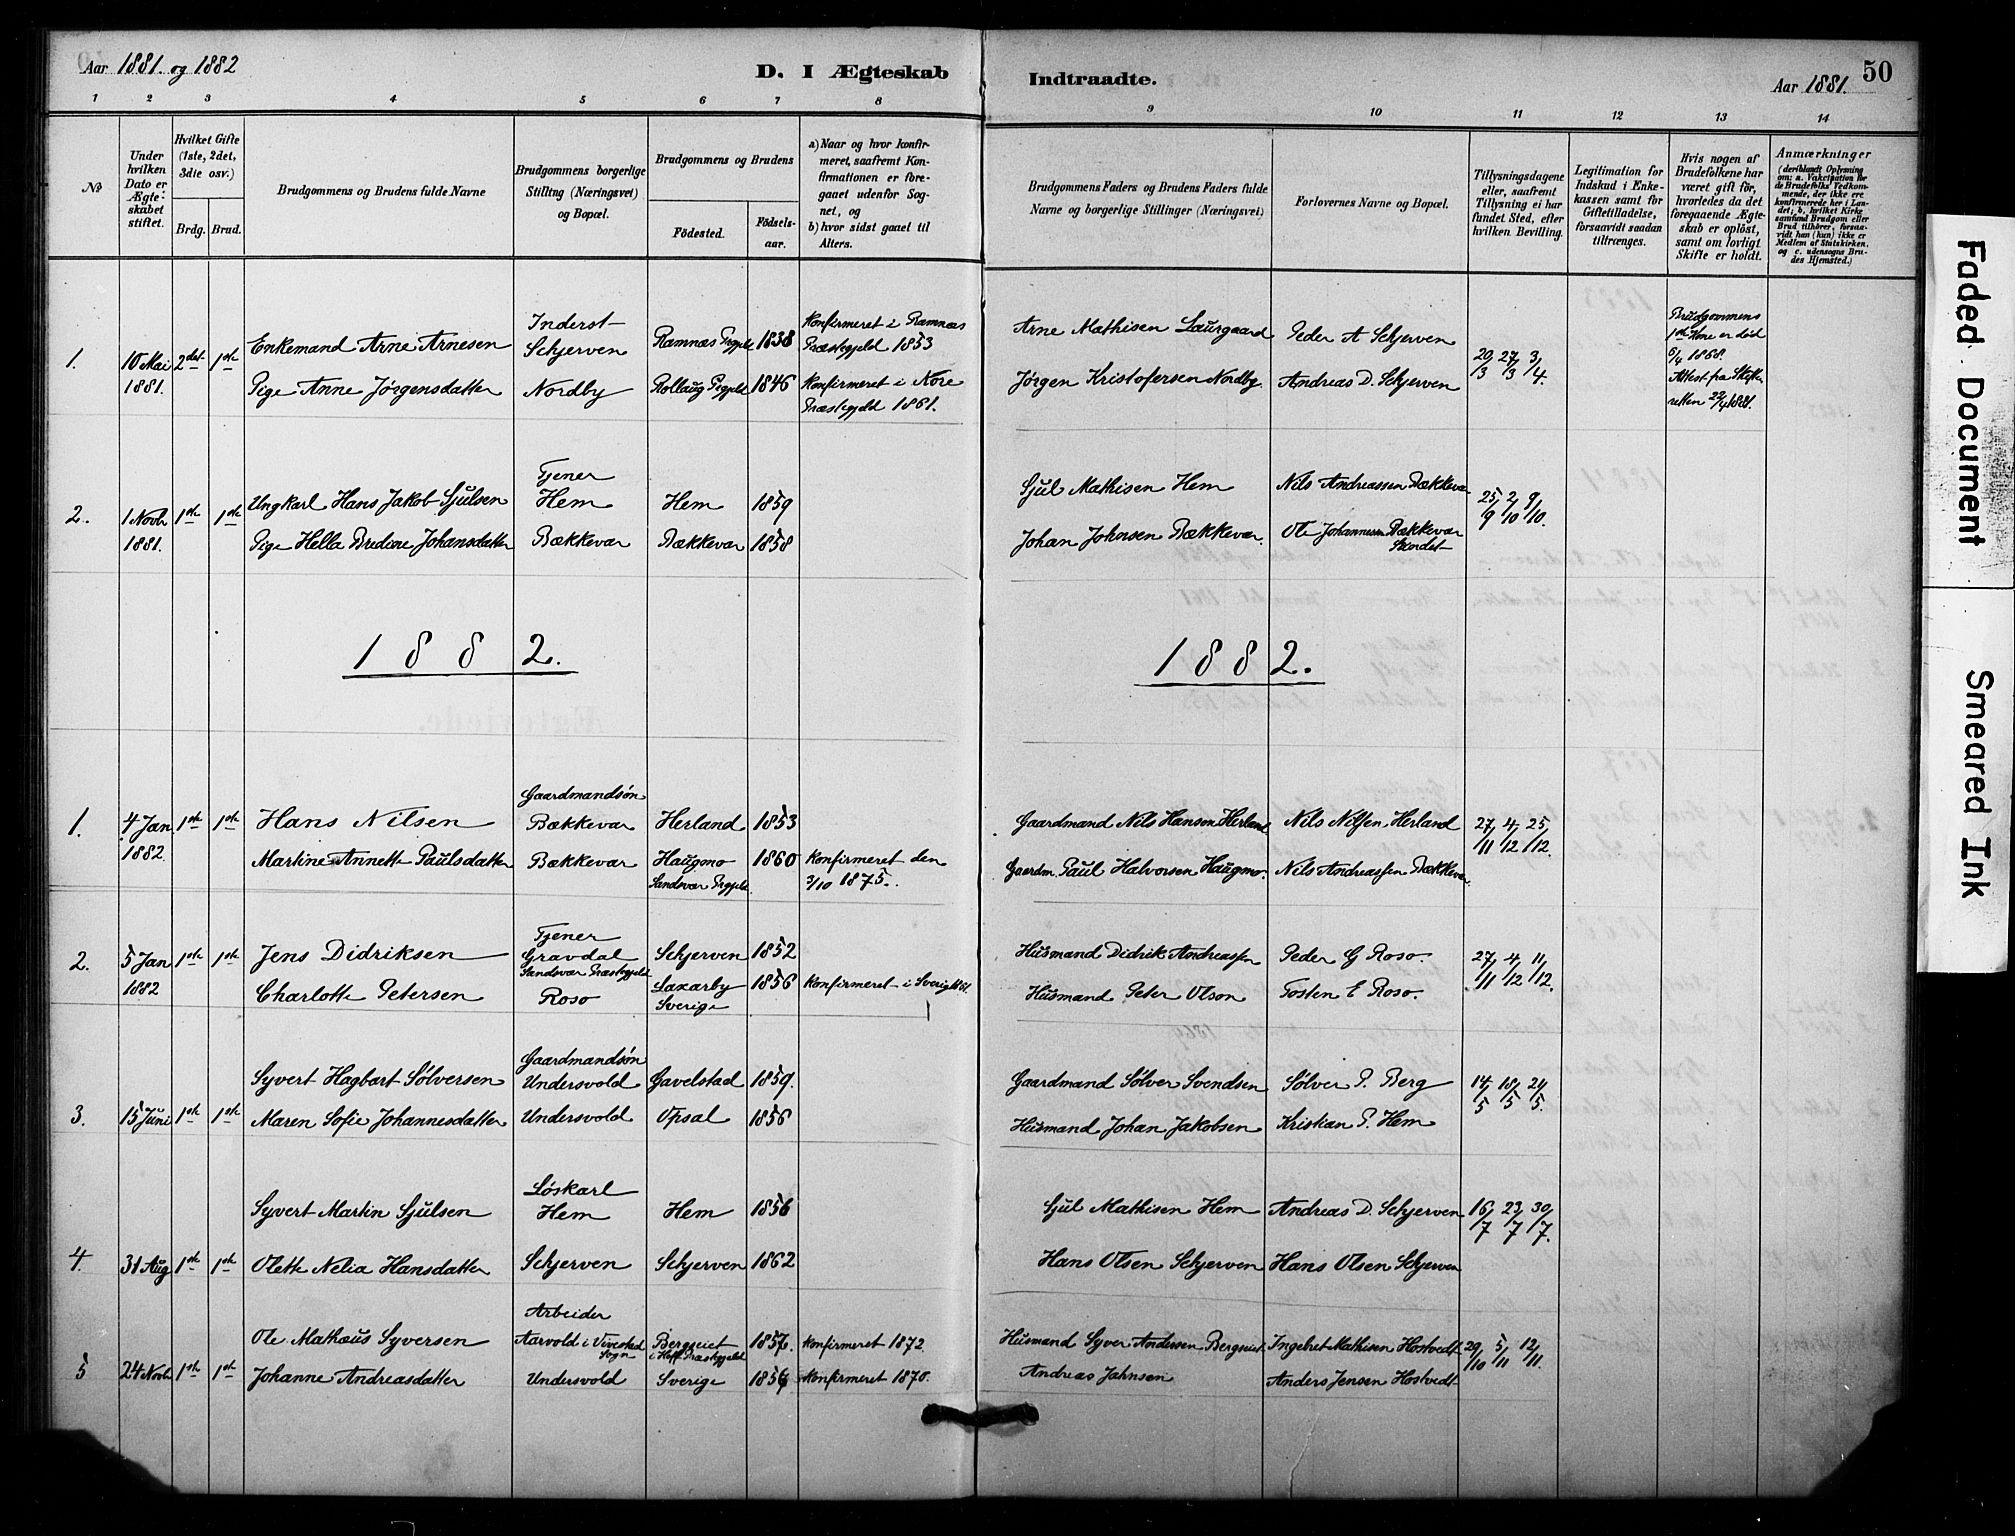 Aar 1881. og 1882
D. I Ægteskab
Indtraadte.
Aar 1881. 50
1 2 3 4 5 6 7 8
9 10 11 12 13 14
No
Under hvilken Dato er Ægteskabet stiftet.
Hvilket Gifte (1ste, 2det, 3die osv.)
Brdg. Brud.
Brudgommens og Brudens fulde Navne
Brudgommens borgerlige Stilling (Næringsvei) og Bopæl.
Brudgommens og Brudens
Fødested.
Fødselsaar.
a) Naar og hvor konfirmeret, saafremt Konfirmationen er foregaaet udenfor Sognet, og
b) hvor sidst gaaet til Alters.
Brudgommens Faders og Brudens Faders fulde Navne og borgerlige Stillinger (Næringsvei)
Forlovernes Navne og Bopæl.
Tillysningsdagene eller, saafremt Tillysning ei har fundet Sted, efter hvilken Bevilling.
Legitimation for Indskud i Enkekassen samt for Giftetilladelse, forsaavidt saadan tiltrænges.
Hvis nogen af Brudefolkene har været gift før, hvorledes da det foregaaende Ægteskab er opløst, samt om lovligt Skifte er holdt.
Anmærkninger
(deriblandt Oplysning om: a. Vakcination for de Brudefolks Vedkommende, der ikke ere konfirmerede her i Landet; b. hvilket Kirkesamfund Brudgom eller Brud tilhører, forsaavidt han (hun) ikke er Medlem af Statskirken, og c. udensogns Brudes Hjemsted.)
1. 10 Mai 1881. 2det 1ste
Enkemand Arne Arnesen
Inderst Schjerven
Ramnæs Prgjeld 1838
Konfirmeret i Ramnæs Præstegjeld 1853
Arne Mathisen Laurgaard
Peder A Schjerven
20/3 27/3 3/4.
Brudgommens 1ste Kone er død 6/4 1868. Attest fra Skifteretten 22/4 1881.
Pige Anne Jørgensdatter
Nordby
Rollaug Prgjeld 1846
Konfirmeret i Nore Præstegjeld 1861.
Jörgen Kristofersen Nordby.
Andreas D. Schjerven
2. 1 Novbr 1881. 1ste 1ste
Ungkarl Hans Jakob Sjulsen
Tjener Hem
Hem 1859
Sjul Mathisen Hem
Nils Andreassen Bækkevar
25/9 2/10 9/10.
Pige Hella Bredine Johansdatter
Bækkevar
Bækkevar 1858
Johan Johnsen Bækkevar.
Ole Johannesen Bækkevar
1882.
1882.
1. 4 Jan 1882. 1ste 1ste
Hans Nilsen
Gaardmandsøn Bækkevar
Herland 1853
Gaardmand Nils Hansen Herland
Nils Nilsen Herland
27/11 4/12 25/12.
Martine Annette Paulsdatter
Bækkevar
Haugmo Sandsvær Prgjeld. 1860
Konfirmeret den 3/10 1875.
Gaardm. Paul Halvorsen Haugmo.
Nils Andreassen Bækkevar.
2. 5 Jan 1882 1ste 1ste
Jens Didriksen
Tjener Gravdal Sandsvær Præstegjeld
Schjerven 1852
Husmand Didrik Andreassen
Peder G Roso.
27/11 4/12 11/12.
Charlotte Petersen
Roso
Laxarby Sverige 1856
Konfirmeret i Sverige
Husmand Peter Olson
Tosten E Roso.
3. 15 Juni 1ste 1ste
Syvert Hagbart Sølversen
Gaardmandsøn Undersvold
Gavelstad 1859.
Gaardmand Sølver Svendsen
Sølver P. Berg
14/5 18/5 21/5.
Maren Sofie Johannesdatter
Undersvold
Opsal 1856
Husmand Johan Jakobsen
Kristian P. Hem
4. 31 Aug 1ste 1ste
Syvert Martin Sjulsen
Løskarl Hem
Hem 1856
Sjul Mathisen Hem
Andreas D. Schjerven
16/7 23/7 30/7.
Olette Nelia Hansdatter
Schjerven
Schjerven 1862
Hans Olsen Schjerven
Hans Olsen Schjerven
5 24 Novbr 1ste 1ste
Ole Mathæus Syversen
Arbeider Aarvold i Vivestad Sogn
Bergseiet i Hoff Præstegjeld 1857.
Konfirmeret 1872.
Husmand Syver Andersen Bergseiet
Ingebret Mathisen Hostvedt
29/10 5/11 12/11.
Johanne Andreasdatter
Undersvold
Sverige 1854
Konfirmeret 1870.
Andreas Jahnsen
Anders Jensen Hostvedt
Faded Document
Smeared Ink